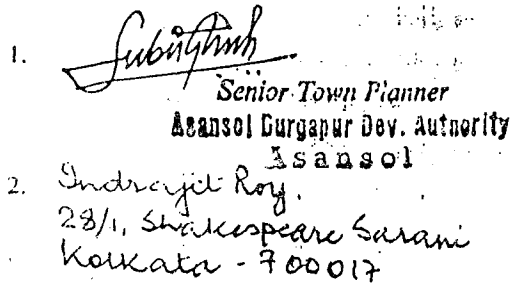 1.
Senior Town Planner
Asansol Durgapur Dev. Authority
Asansol
2. Indrajit Roy.
28/1, Shakespeare Sarani
Kolkata - 700017